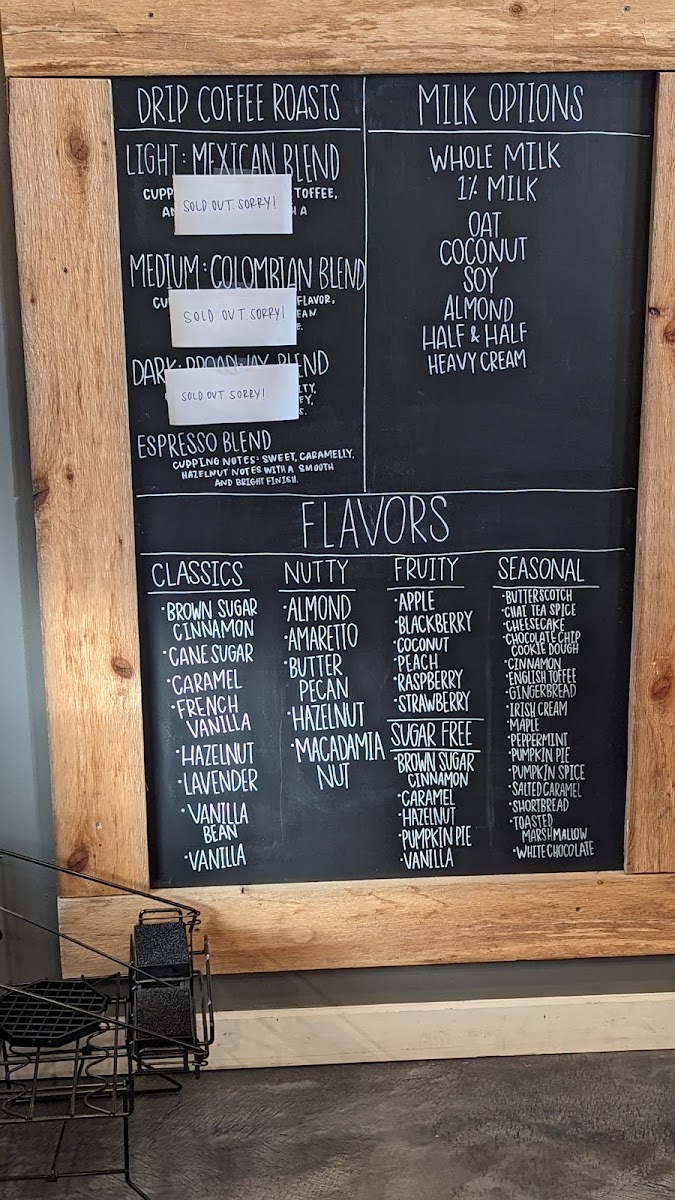 DRIP COFFEE ROASTS
LIGHT: MEXICAN BLEND
TOFFEE,
A
SOLD OUT. SORRY!
MEDIUM: COLOMBIAN BLEND
FLAVOR,
SOLD OUT. SORRY!
DARK: BROADWAY BLEND
SOLD OUT. SORRY!
ESPRESSO BLEND
CUPPING NOTES: SWEET, CARAMELLY,
HAZELNUT NOTES WITH A SMOOTH
AND BRIGHT FINISH.
MILK OPTIONS
WHOLE MILK
1% MILK
OAT
COCONUT
SOY
ALMOND
HALF & HALF
HEAVY CREAM
FLAVORS
CLASSICS
·BROWN SUGAR
CINNAMON
·CANE SUGAR
·CARAMEL
·FRENCH
VANILLA
·HAZELNUT
·LAVENDER
·VANILLA
BEAN
·VANILLA
NUTTY
·ALMOND
·AMARETTO
·BUTTER
PECAN
·HAZELNUT
·MACADAMIA
NUT
FRUITY
·APPLE
·BLACKBERRY
·COCONUT
·PEACH
·RASPBERRY
·STRAWBERRY
SUGAR FREE
·BROWN SUGAR
CINNAMON
·CARAMEL
·HAZELNUT
·PUMPKIN PIE
·VANILLA
SEASONAL
·BUTTERSCOTCH
·CHAI TEA SPICE
·CHEESECAKE
·CHOCOLATE CHIP
COOKIE DOUGH
·CINNAMON
·ENGLISH TOFFEE
·GINGERBREAD
·IRISH CREAM
·MAPLE
·PEPPERMINT
·PUMPKIN PIE
·PUMPKIN SPICE
·SALTED CARAMEL
·SHORTBREAD
·TOASTED
MARSHMALLOW
·WHITE CHOCOLATE